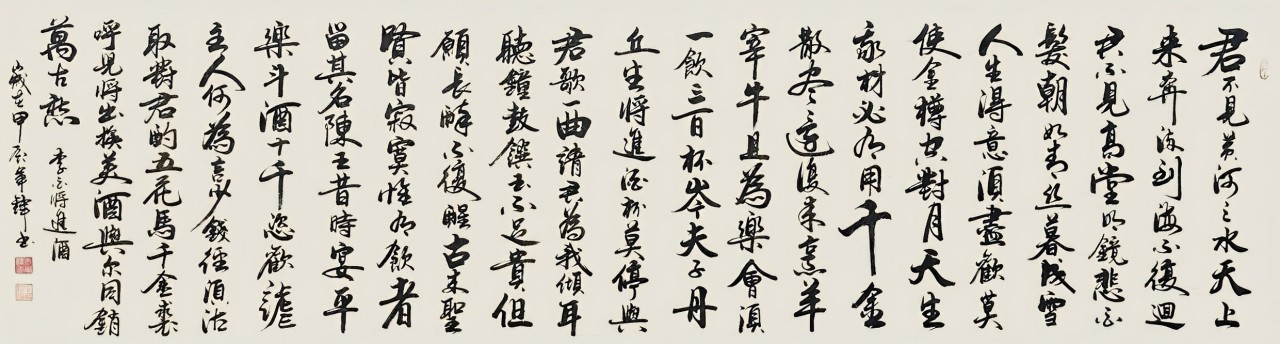 君不見黃河之水天上
來奔流到海不復迴
君不見高堂明鏡悲白
髮朝如青絲暮成雪
人生得意須盡歡莫
使金樽空對月天生
我材必有用千金
散盡還復來烹羊
宰牛且為樂會須
一飲三百杯岑夫子丹
丘生將進酒杯莫停與
君歌一曲請君為我傾耳
聽鐘鼓饌玉不足貴但
願長醉不復醒古來聖
賢皆寂寞惟有飲者
留其名陳王昔時宴平
樂斗酒十千恣歡謔
主人何為言少錢徑須沽
取對君酌五花馬千金裘
呼兒將出換美酒與爾同銷
萬古愁 李白將進酒
歲在甲辰年 書